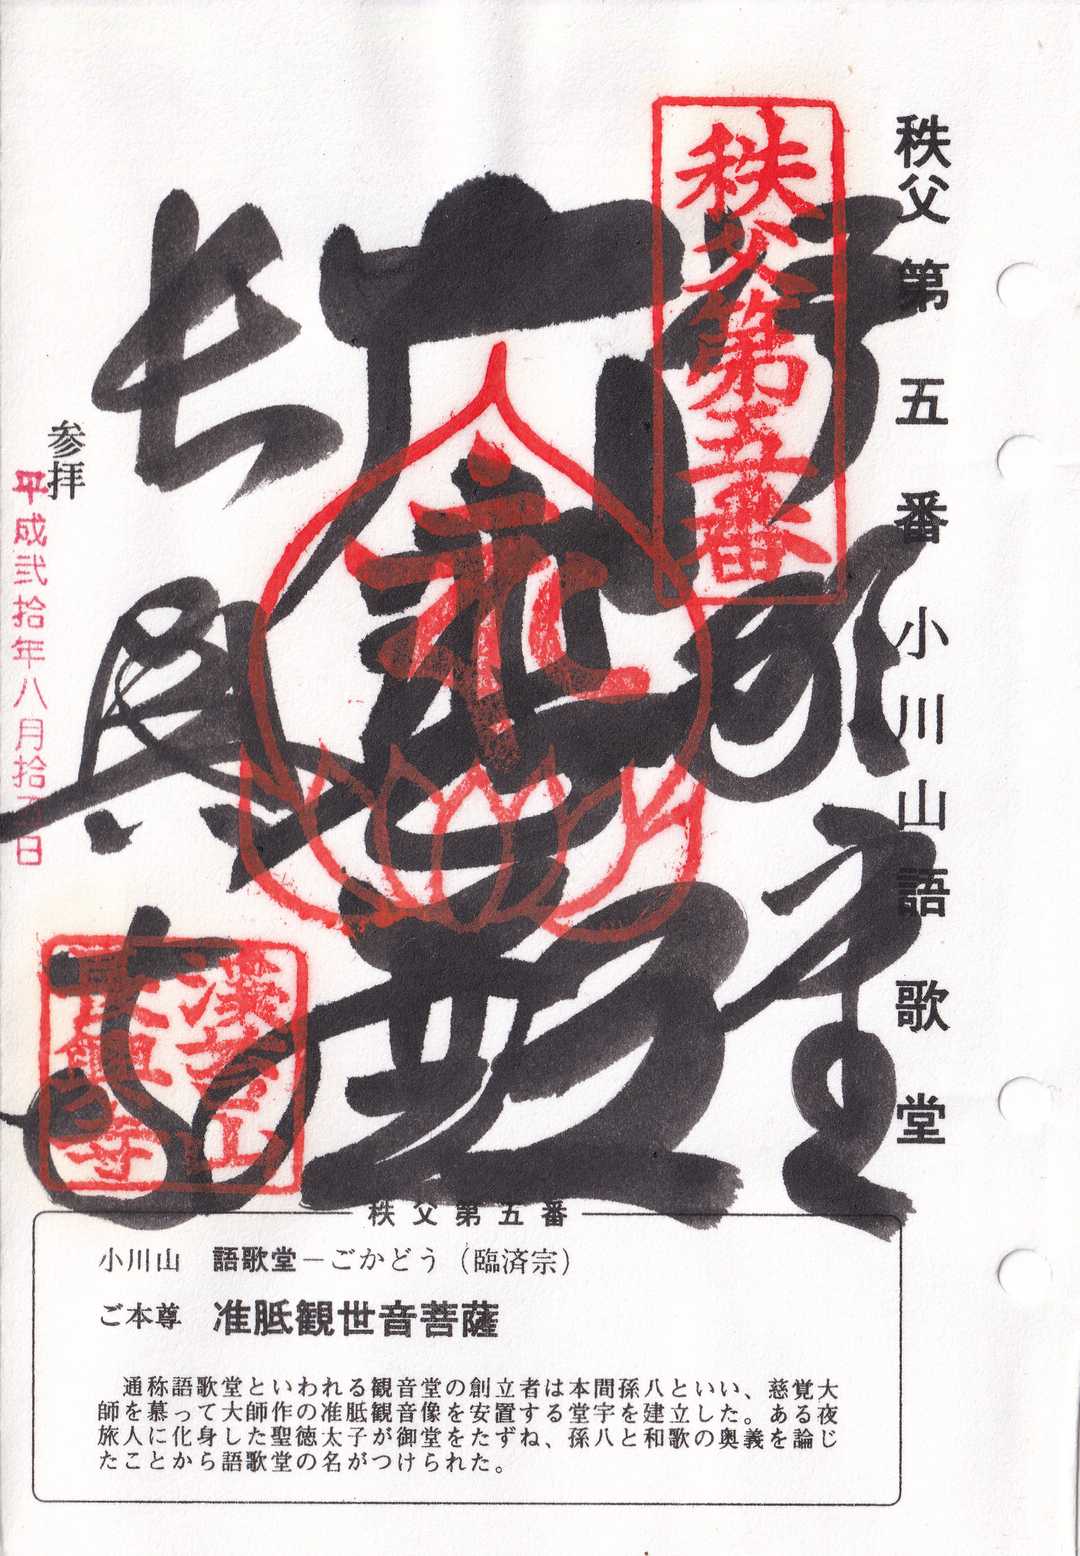 秩父第五番小川山語歌堂
秩父第五番
語歌堂
長興寺
参拝
平成弐拾年八月拾
日
山
寺
秩父第五番
小川山 語歌堂－ごかどう（臨済宗）
ご本尊 准胝観世音菩薩
通称語歌堂といわれる観音堂の創立者は本間孫八といい、慈覚大
師を慕って大師作の准胝観音像を安置する堂宇を建立した。ある夜
旅人に化身した聖徳太子が御堂をたずね、孫八と和歌の奥義を論じ
たことから語歌堂の名がつけられた。